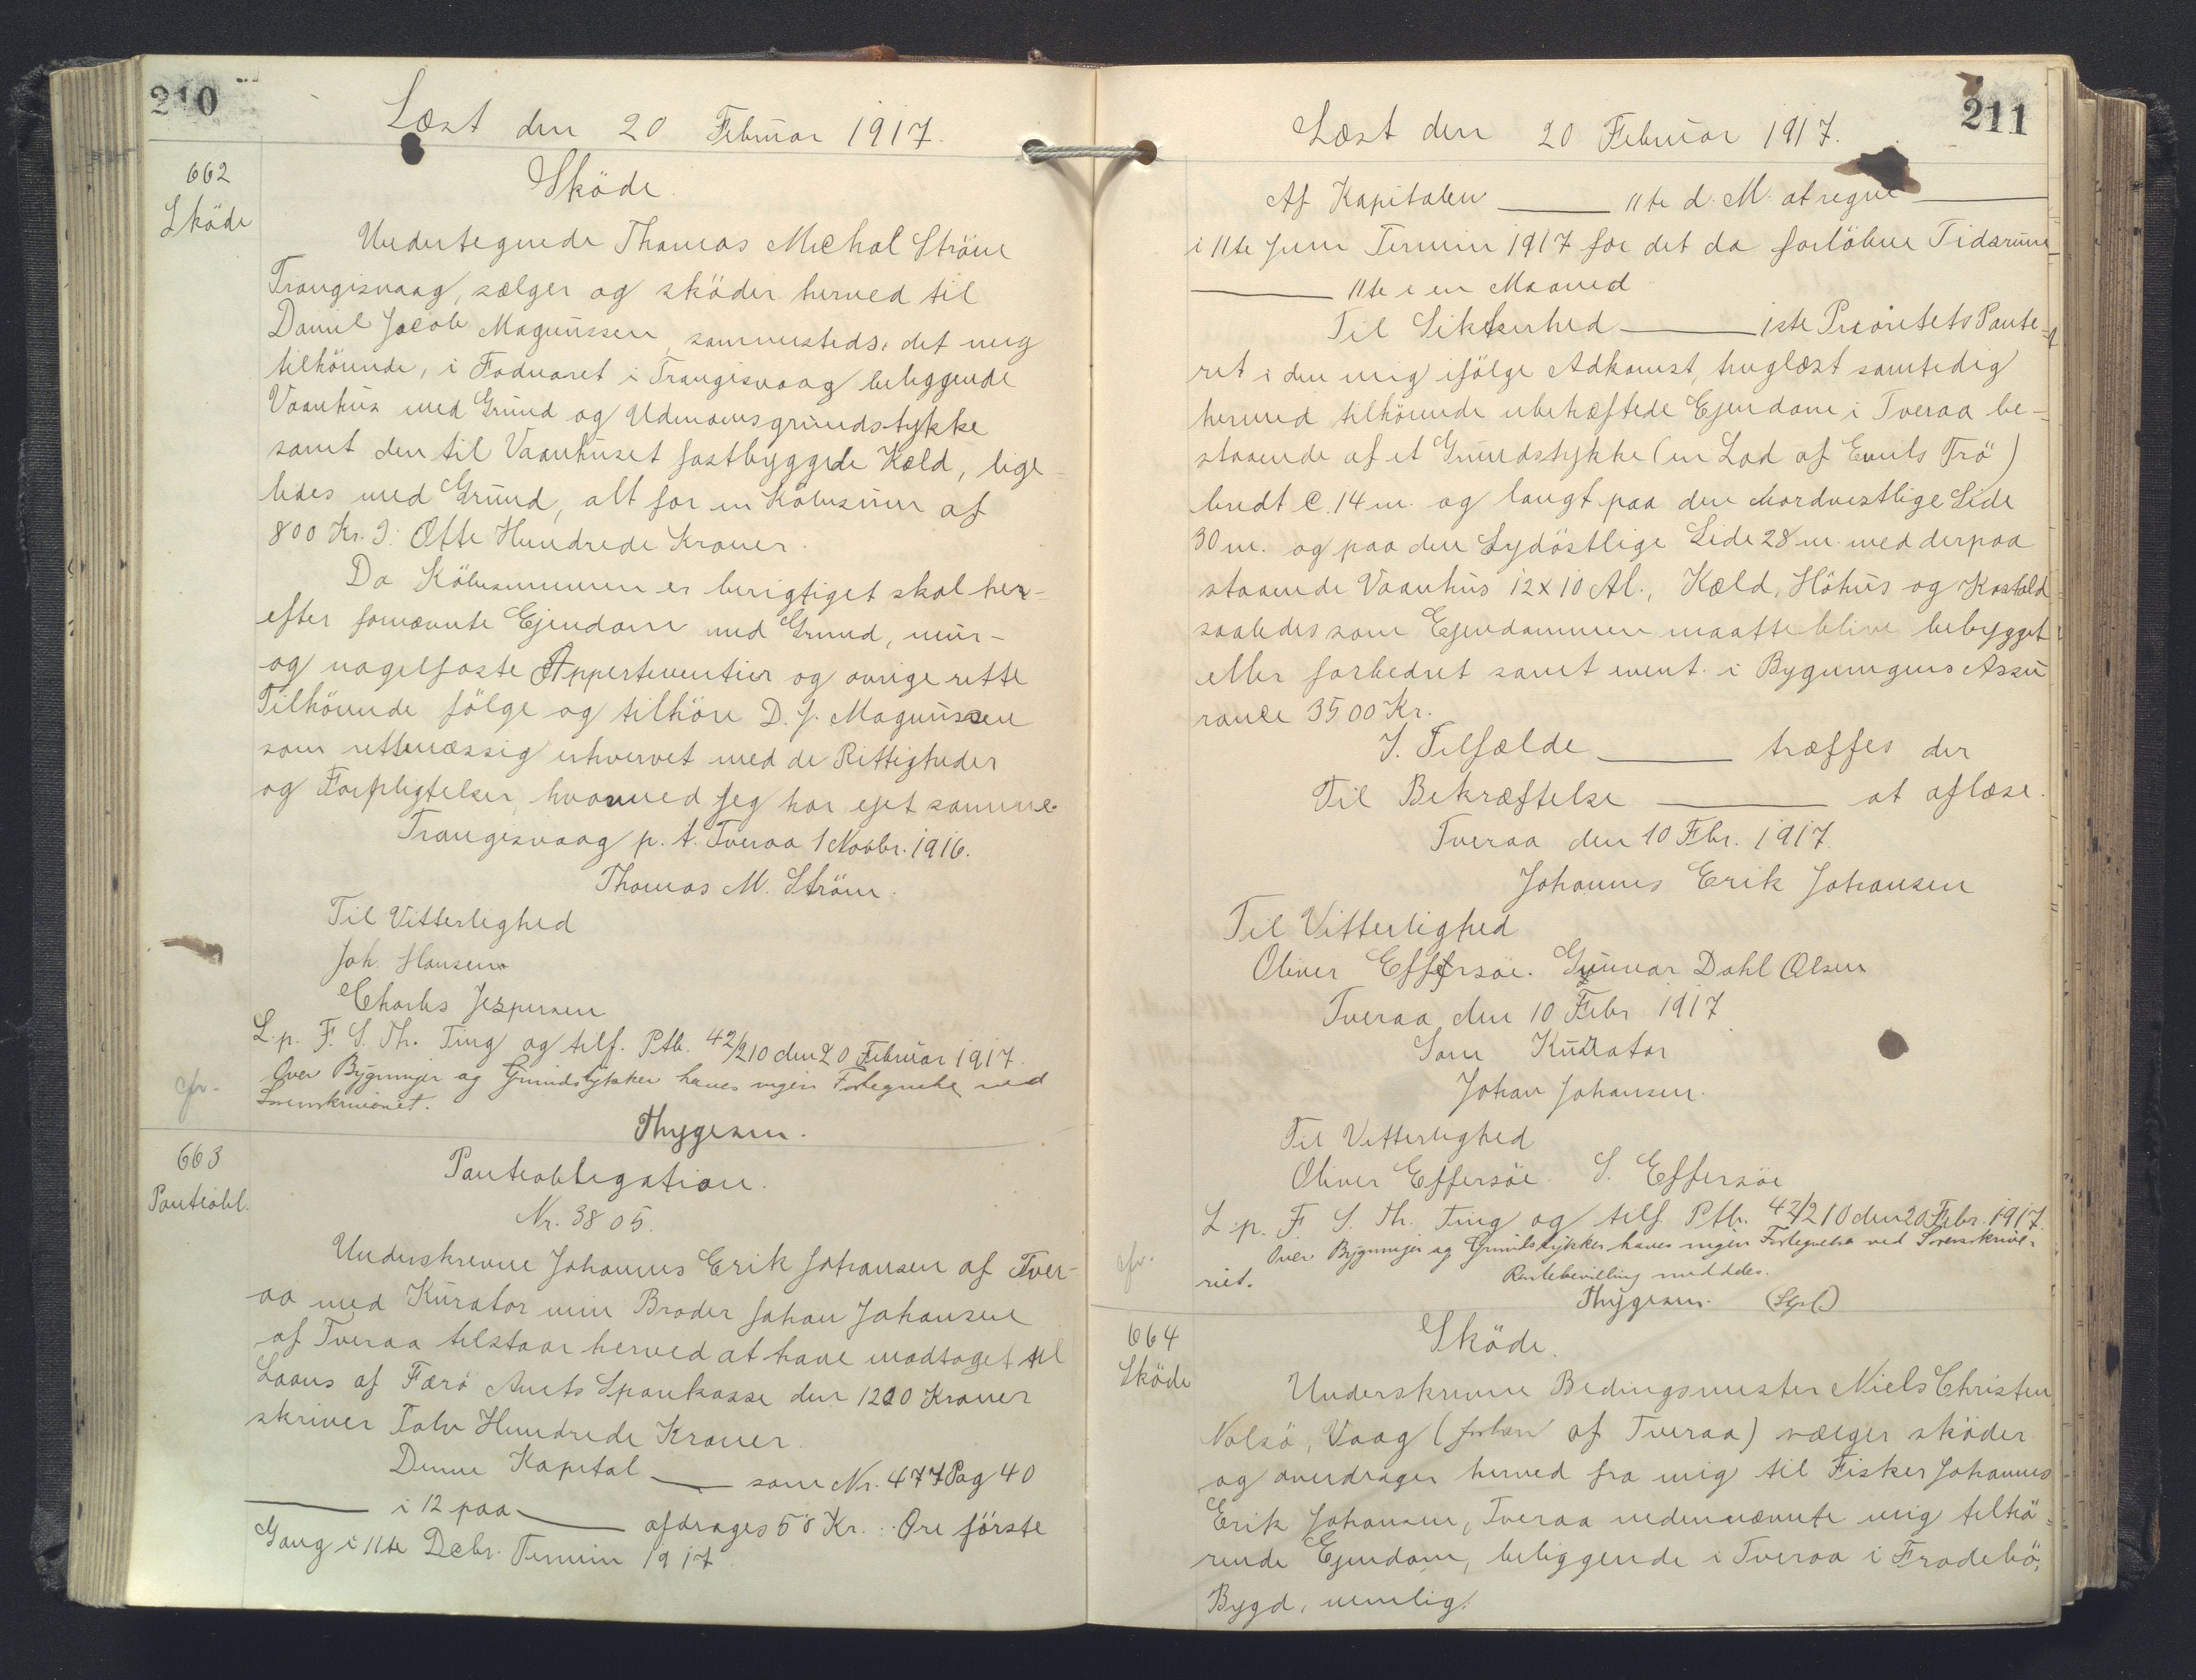 210
Læst den 20 Februar 1917.
662
Sköde
Sköde.
Undertegnede Thomas Michal Ström
Trangisvaag, sælger og sköder herved til
Daniel Jacob Magnussen, sammesteds, det mig
tilhörende, i Fodvaret i Trangisvaag beliggende
Vaanhus med Grund og Udmomsgrundstykke
samt den til Vaanhuset fastbyggede Kæld, lige-
ledes med Grund, alt for en Köbesum af
800 Kr. ɔ: Otte Hundrede Kroner.
Da Köbesummen er berigtiget skal her-
efter fornævnte Ejendom med Grund, mur-
og nagelfaste Appertinentier og övrige rette
Tilhörende fölge og tilhöre D. J. Magnussen
som retmæssig erhvervet med de Rettigheder
og Forpligtelser, hvormed jeg har ejet samme.
Trangisvaag p. t. Tveraa 1 Novbr. 1916.
Thomas M. Ström.
Til Vitterlighed
Joh. Hansen
Charles Jespersen
L. p. F. S. Th. Ting og tilf. Ptb. 42/210 den 20 Februar 1917.
cfr.
Over Bygninger og Grundstykker haves ingen Fortegnelse ved
Sorenskriveriet.
Thygesen.
663
Panteobl.
Panteobligation.
Nr. 3805.
Underskrevne Johannes Erik Johansen af Tver-
aa med Kurator min Broder Johan Johansen
af Tveraa tilstaar herved at have modtaget til
Laans af Færö Amts Sparekasse den 1200 Kroner
skriver Tolv Hundrede Kroner.
Denne Kapital ___ som Nr. 477 Pag 40
___ i 12 paa ___ afdrages 50 Kr. .. Öre förste
Gang i 11te Decbr. Termin 1917.
211
Læst den 20 Februar 1917.
Af Kapitalen ___ 11te d. M. at regne ___
i 11te Juni Termin 1917 for det da forlöbne Tidsrum
___ 11te i en Maaned
Til Sikkerhed ___ 1ste Prioritets Pante-
ret i den mig ifölge Adkomst, tinglæst samtidig
hermed tilhörende ubehæftede Ejendom i Tveraa be-
staaende af et Grundstykke (en Lod af Emils Trö)
bredt c. 14 m. og langt paa den Nordvestlige Side
30 m. og paa den Sydöstlige Side 28 m. med derpaa
staaende Vaanhus 12 x 10 Al., Kæld, Höhus og Kostald
saaledes som Ejendommen maatte blive bebygget
eller forbedret samt event. i Bygningens Assu
rance 3500 Kr.
I Tilfælde ___ træffes der
Til Bekræftelse ___ at aflæse.
Tveraa den 10 Fbr. 1917.
Johannes Erik Johansen
Til Vitterlighed
Oliver Effersöe. Gunnar Dahl Olsen
Tveraa den 10 Febr 1917
Som Kurator
Johan Johansen.
Til Vitterlighed
Oliver Effersöe S. Effersöe
L. p. F. S. Th. Ting og tilf. Ptb. 42/210 den 20 Febr. 1917.
cfr.
Over Bygninger og Grundstykker haves ingen Fortegnelse ved Sorenskrive-
riet.
Rentebevilling meddeles.
Thygesen. (Sgl.)
664
Sköde
Sköde.
Underskrevne Bedingsmester Niels Christen
Nolsö, Vaag (forhen af Tveraa) sælger sköder
og overdrager herved fra mig til Fisker Johannes
Erik Johansen, Tveraa nedennævnte mig tilhö-
rende Ejendom, beliggende i Tveraa i Frodebö,
Bygd, nemlig: